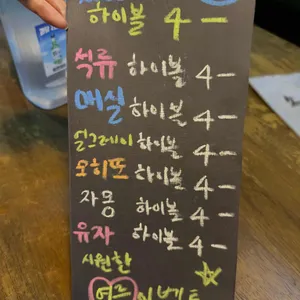 하이볼 4-
석류 하이볼 4-
매실 하이볼 4-
얼그레이 하이볼 4-
오히또 하이볼 4-
자몽 하이볼 4-
유자 하이볼 4-
시원한
여름 이벤트